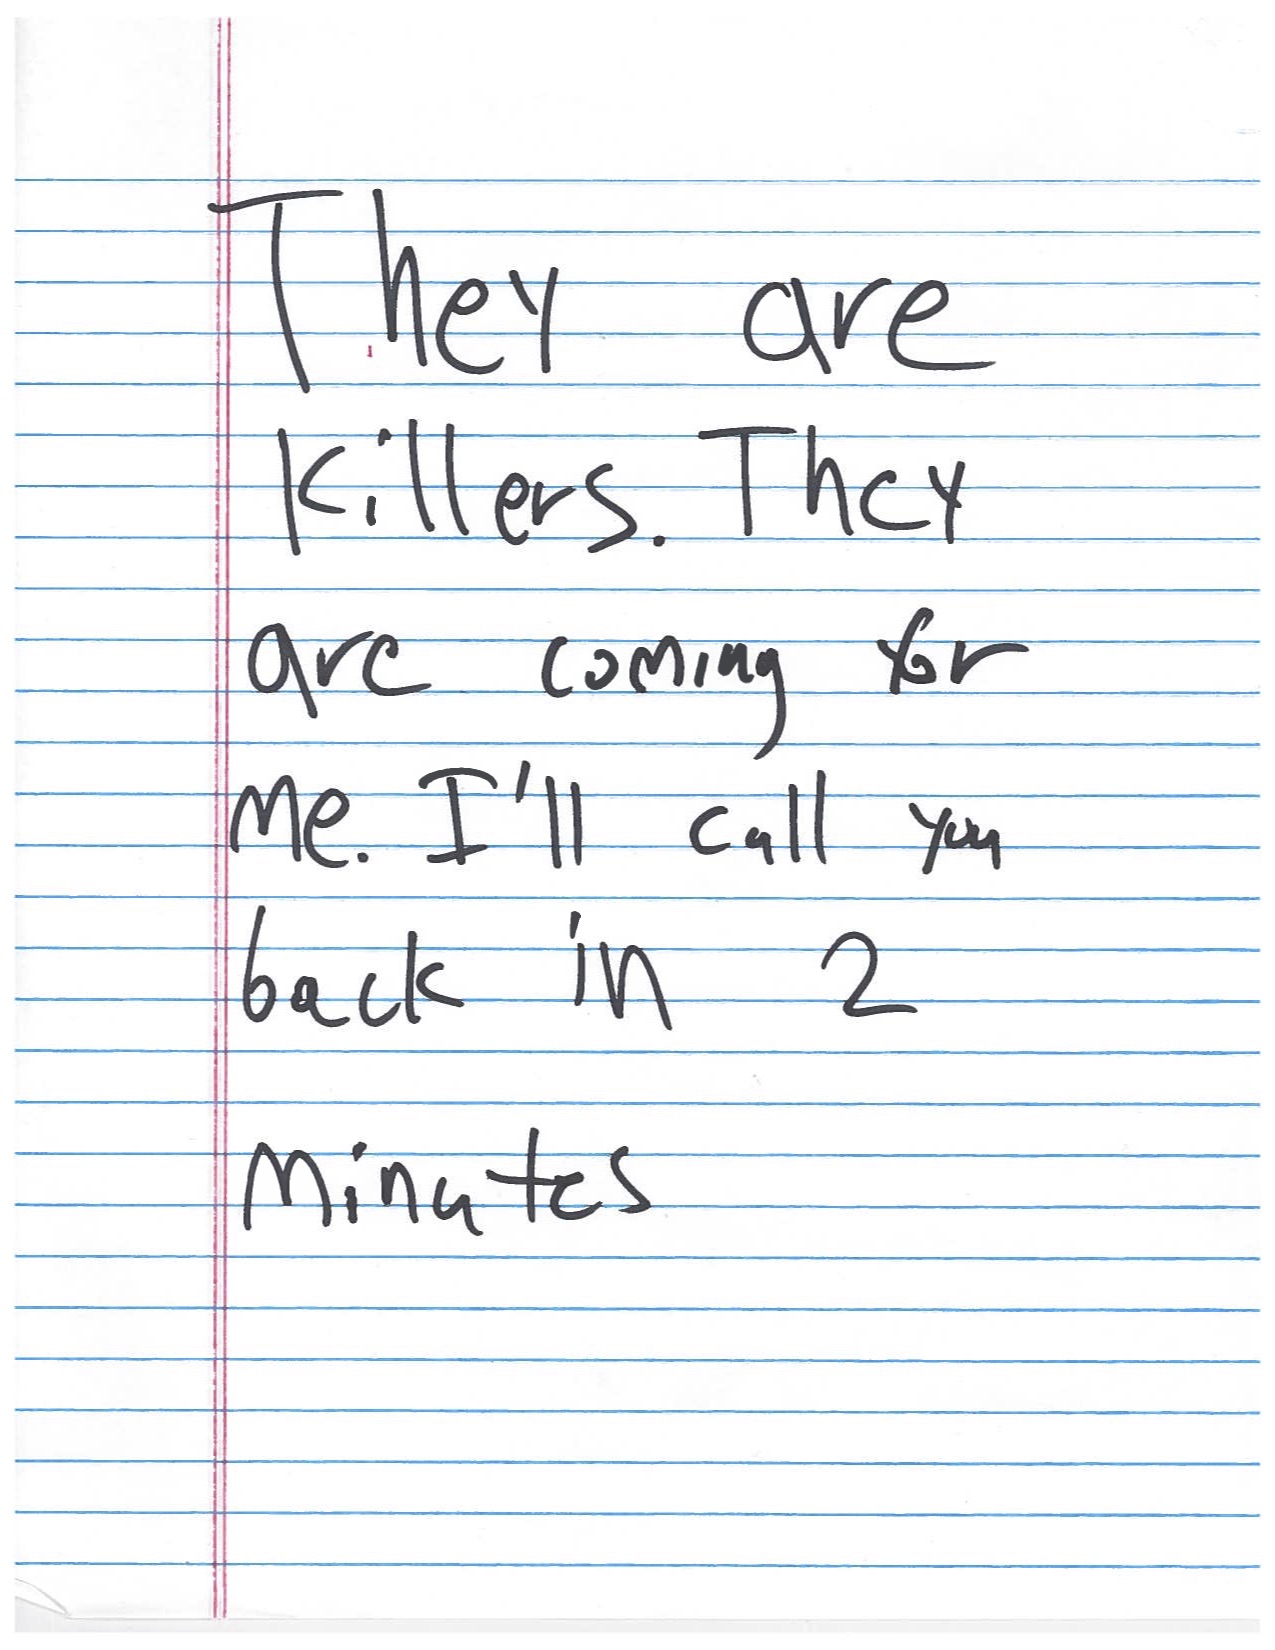 They are
Killers. They
are coming for
me. I'll call you
back in 2
minutes